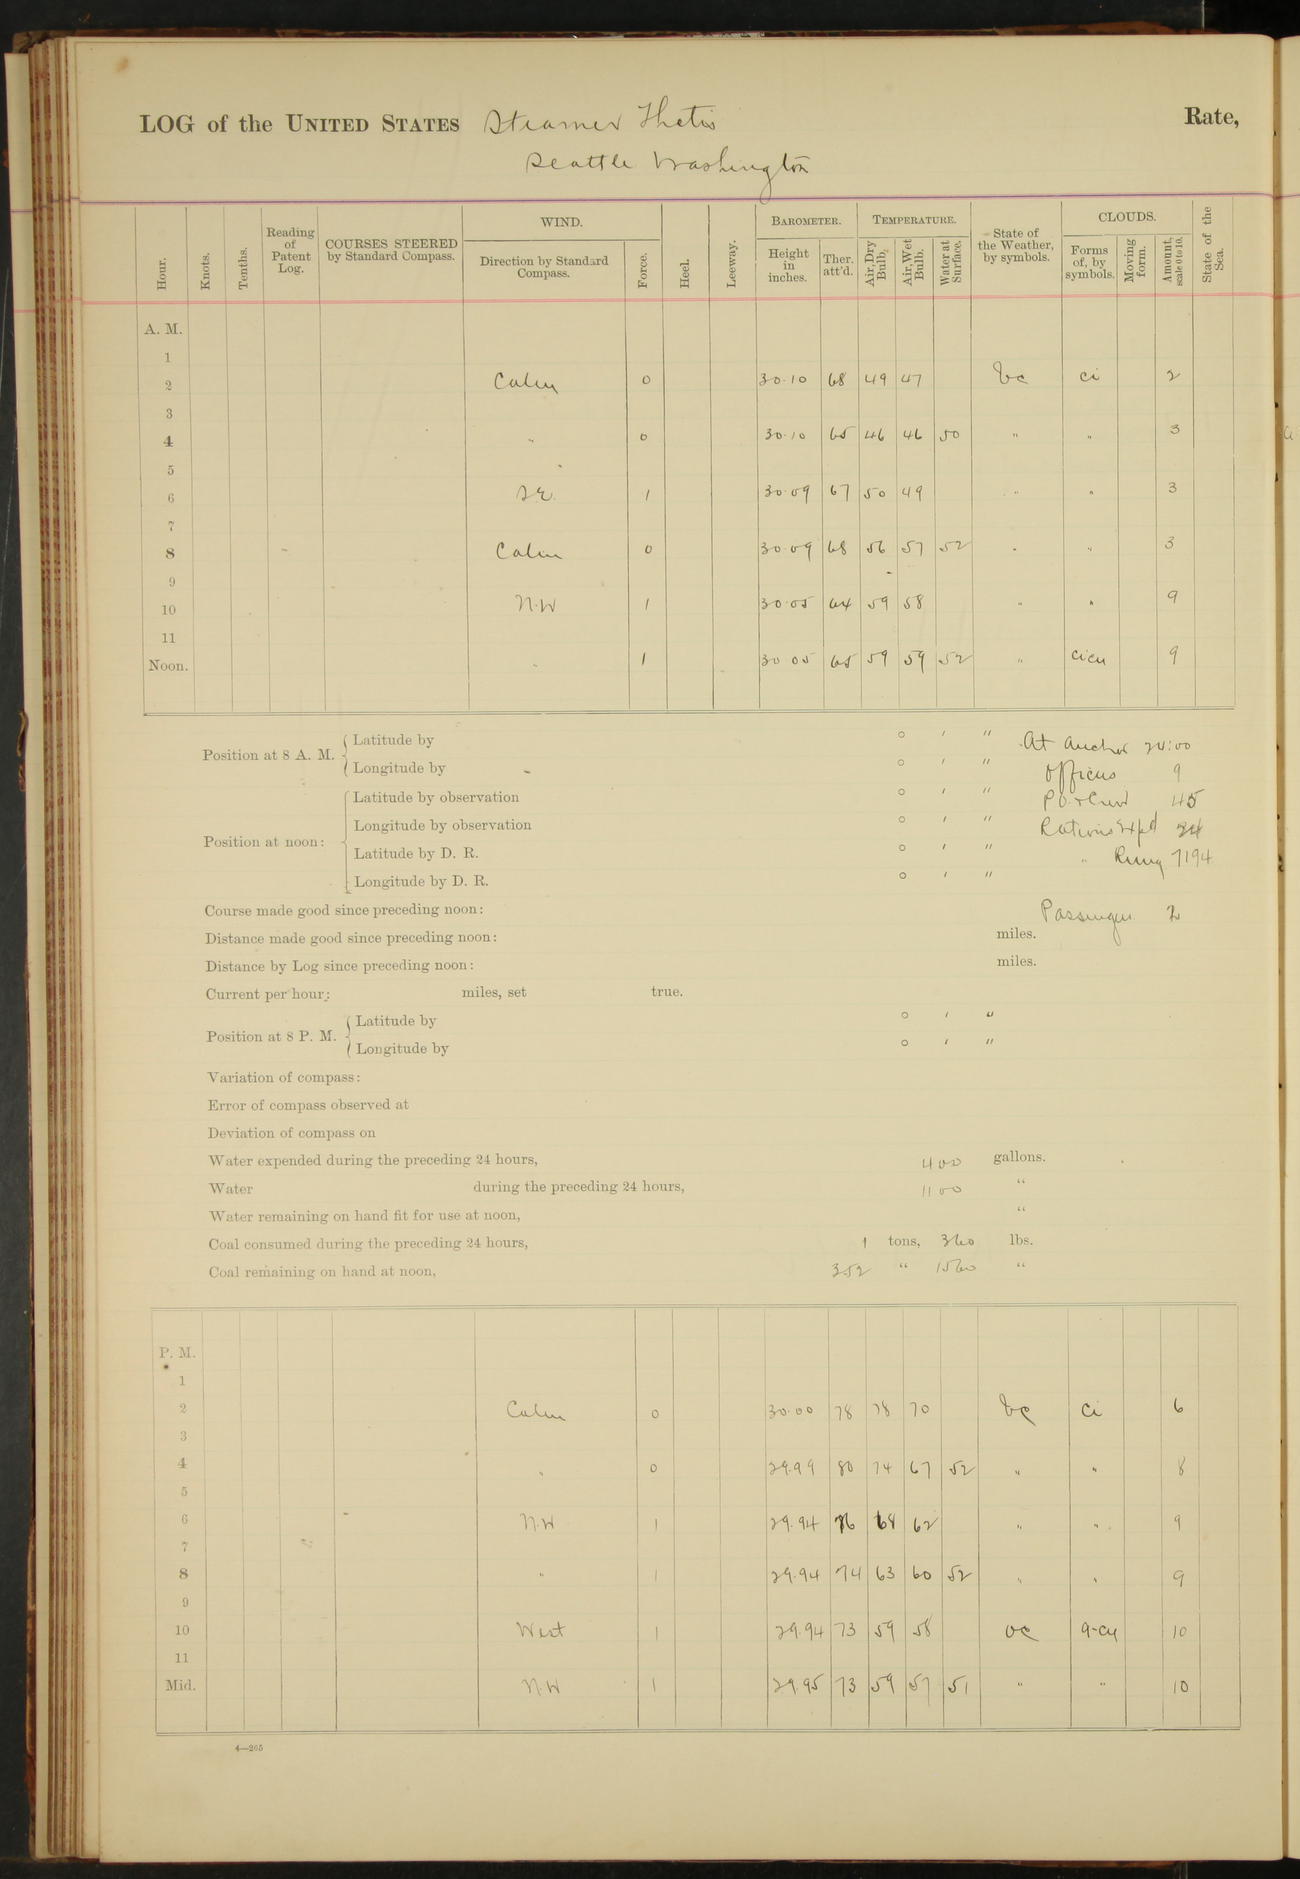 LOG of the UNITED STATES Steamer Thetis Rate,
Seattle Washington
Hour. Knots. Tenths. Reading of Patent Log. COURSES STEERED by Standard Compass. WIND. Direction by Standard Compass. Force. Heel. Leeway. BAROMETER. Height in inches. Ther. att'd. TEMPERATURE. Air, Dry Bulb. Air, Wet Bulb. Water at Surface. State of the Weather, by symbols. CLOUDS. Forms of, by symbols. Moving form. Amount, scale 0 to 10. State of the Sea.
A. M.
1
2 Calm 0 30.10 68 49 47 bc ci 2
3
4 " 0 30.10 65 46 46 50 " " 3
5
6 SE. 1 30.09 67 50 49 " " 3
7
8 Calm 0 30.09 68 56 57 52 " " 3
9
10 N.W 1 30.05 64 59 58 " " 9
11
Noon. " 1 30 05 65 59 59 52 " cicu 9
Position at 8 A. M. Latitude by ° ′ ″ At anchor 24:00
Longitude by ° ′ ″ Officers 9
Position at noon: Latitude by observation ° ′ ″ P.O. & Crew 45
Longitude by observation ° ′ ″ Rations Expd
Latitude by D. R. ° ′ ″ " Remg 7194
Longitude by D. R. ° ′ ″
Course made good since preceding noon: Passenger 2
Distance made good since preceding noon: miles.
Distance by Log since preceding noon: miles.
Current per hour: miles, set true.
Position at 8 P. M. Latitude by ° ′ ″
Longitude by ° ′ ″
Variation of compass:
Error of compass observed at
Deviation of compass on
Water expended during the preceding 24 hours, 400 gallons.
Water during the preceding 24 hours, 1100 "
Water remaining on hand fit for use at noon, "
Coal consumed during the preceding 24 hours, 1 tons, 360 lbs.
Coal remaining on hand at noon, 352 " 1560 "
P. M.
1
2 Calm 0 30.00 78 78 70 bc ci 6
3
4 " 0 29.99 80 74 67 52 " " 8
5
6 N.W 1 29.94 76 68 62 " " 9
7
8 " 1 29.94 74 63 60 52 " " 9
9
10 West 1 29.94 73 59 58 oc a-cu 10
11
Mid. N.W 1 29.95 73 59 57 51 " " 10
4—265